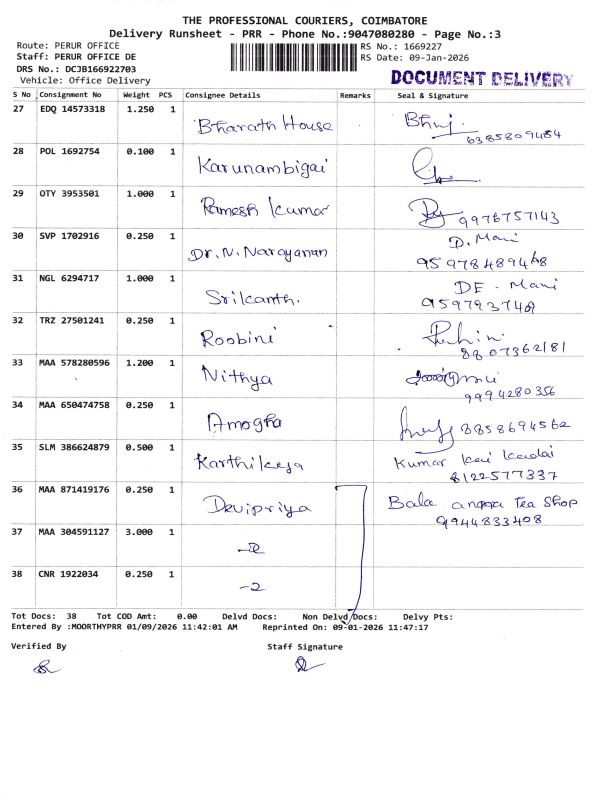 THE PROFESSIONAL COURIERS, COIMBATORE
Delivery Runsheet - PRR - Phone No.:9047080280 - Page No.:3
Route: PERUR OFFICE
Staff: PERUR OFFICE DE
DRS No.: DCJB166922703
Vehicle: Office Delivery
RS No.: 1669227
RS Date: 09-Jan-2026
DOCUMENT DELIVERY
S No Consignment No Weight PCS Consignee Details Remarks Seal & Signature
27 EDQ 14573318 1.250 1 Bharath House
6385809484
28 POL 1692754 0.100 1 Karunambigai
29 OTY 3953501 1.000 1 Ramesh kumar 9976757143
30 SVP 1702916 0.250 1 Dr. N. Narayanan D. Mani
31 NGL 6294717 1.000 1 Srikanth. DE - Mani
32 TRZ 27501241 0.250 1 Roobini
8807362181
33 MAA 578280596 1.200 1 Nithya
9994280356
34 MAA 650474758 0.250 1 Amogha 8858694562
35 SLM 386624879 0.500 1 Karthikeya Kumar
8122577337
36 MAA 871419176 0.250 1 Devipriya Bala Tea Shop
9944833408
37 MAA 304591127 3.000 1
38 CNR 1922034 0.250 1 -2
Tot Docs: 38 Tot COD Amt: 0.00 Delvd Docs: Non Delvd Docs: Delvy Pts:
Entered By :MOORTHYPRR 01/09/2026 11:42:01 AM Reprinted On: 09-01-2026 11:47:17
Verified By Staff Signature